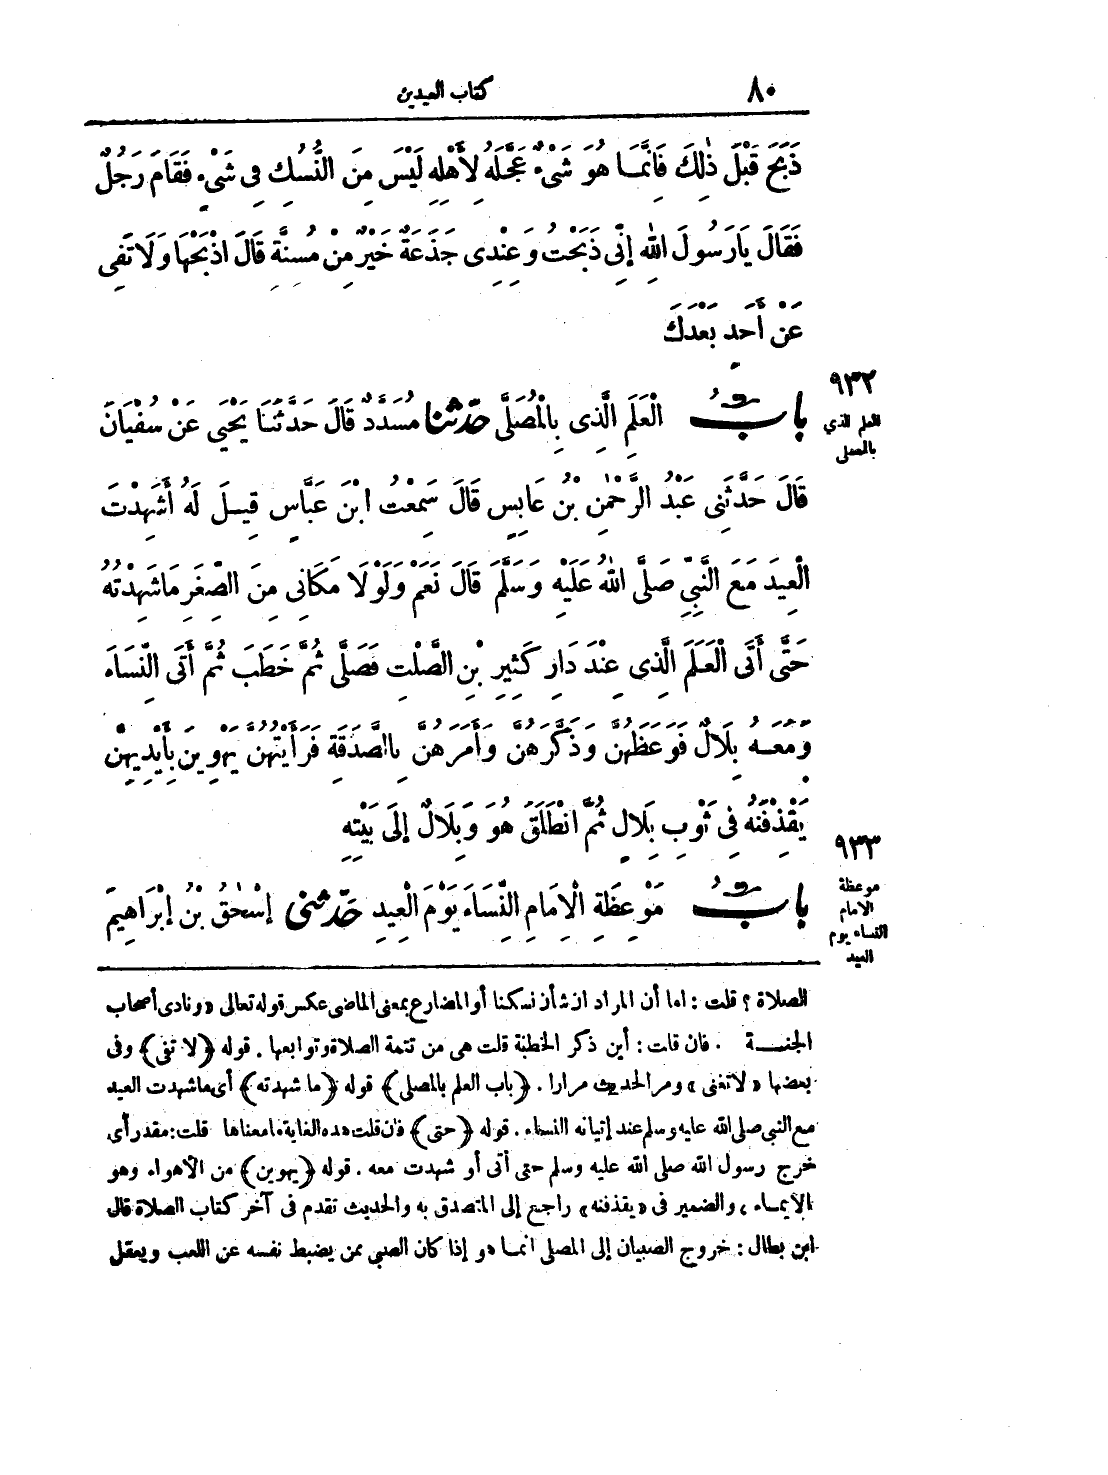 ٨٠ كتاب العيدين
ذَبَحَ قَبْلَ ذٰلِكَ فَانَّمَا هُوَ شَىْءٌ عَجَّلَهُ لِأَهْلِهِ لَيْسَ مِنَ النُّسُكِ فِى شَىْءٍ فَقَامَ رَجُلٌ
فَقَالَ يَارَسُولَ اللهِ إِنِّى ذَبَحْتُ وَعِنْدِى جَذَعَةٌ خَيْرٌ مِنْ مُسِنَّةٍ قَالَ اذْبَحْهَا وَلَا تَفِى
عَنْ أَحَدٍ بَعْدَكَ
٩٣٢
العلم الذي
بالمصلى
بابٌ الْعَلَمِ الَّذِى بِالْمُصَلَّى حَدَّثَنَا مُسَدَّدٌ قَالَ حَدَّثَنَا يَحْيَى عَنْ سُفْيَانَ
قَالَ حَدَّثَنِى عَبْدُ الرَّحْمٰنِ بْنُ عَابِسٍ قَالَ سَمِعْتُ ابْنَ عَبَّاسٍ قِيلَ لَهُ أَشَهِدْتَ
الْعِيدَ مَعَ النَّبِىِّ صَلَّى اللهُ عَلَيْهِ وَسَلَّمَ قَالَ نَعَمْ وَلَوْلَا مَكَانِى مِنَ الصِّغَرِ مَاشَهِدْتُهُ
حَتَّى أَتَى الْعَلَمَ الَّذِى عِنْدَ دَارِ كَثِيرِ بْنِ الصَّلْتِ فَصَلَّى ثُمَّ خَطَبَ ثُمَّ أَتَى النِّسَاءَ
وَمَعَهُ بِلَالٌ فَوَعَظَهُنَّ وَذَكَّرَهُنَّ وَأَمَرَهُنَّ بِالصَّدَقَةِ فَرَأَيْتُهُنَّ يَهْوِينَ بِأَيْدِيهِنَّ
يَقْذِفْنَهُ فِى ثَوْبِ بِلَالٍ ثُمَّ انْطَلَقَ هُوَ وَبِلَالٌ إِلَى بَيْتِهِ
٩٣٣
موعظة
الامام
النساء يوم
العيد
بابُ مَوْعِظَةِ الْاِمَامِ النِّسَاءَ يَوْمَ الْعِيدِ حَدَّثَنِى إِسْحٰقُ بْنُ إِبْرَاهِيمَ
الصلاة؟ قلت: اما أن المراد ان شأن نسكنا أو المضارع بمعنى الماضى عكس قوله تعالى «ونادى أصحاب
الجنـة . فان قلت: أين ذكر الخطبة قلت هى من تتمة الصلاة وتوابعها. قوله (لا تفى) وفى
بعضها «لاتغنى» ومر الحديث مرارا. (باب العلم بالمصلى) قوله (ما شهدته) أى ماشهدت العيد
مع النبى صلى الله عليه وسلم عند إتيانه النساء. قوله (حتى) فان قلت هذه الغاية ما معناها قلت: مقدر أى
خرج رسول الله صلى الله عليه وسلم حتى أتى أو شهدت معه. قوله (يهوين) من الأهواء وهو
الايمـاء، والضمير فى «يقذفنه» راجع إلى المتصدق به والحديث تقدم فى آخر كتاب الصلاة قال
ابن بطال: خروج الصبيان إلى المصلى انمـا هو إذا كان الصبى ممن يضبط نفسه عن اللعب ويعقل